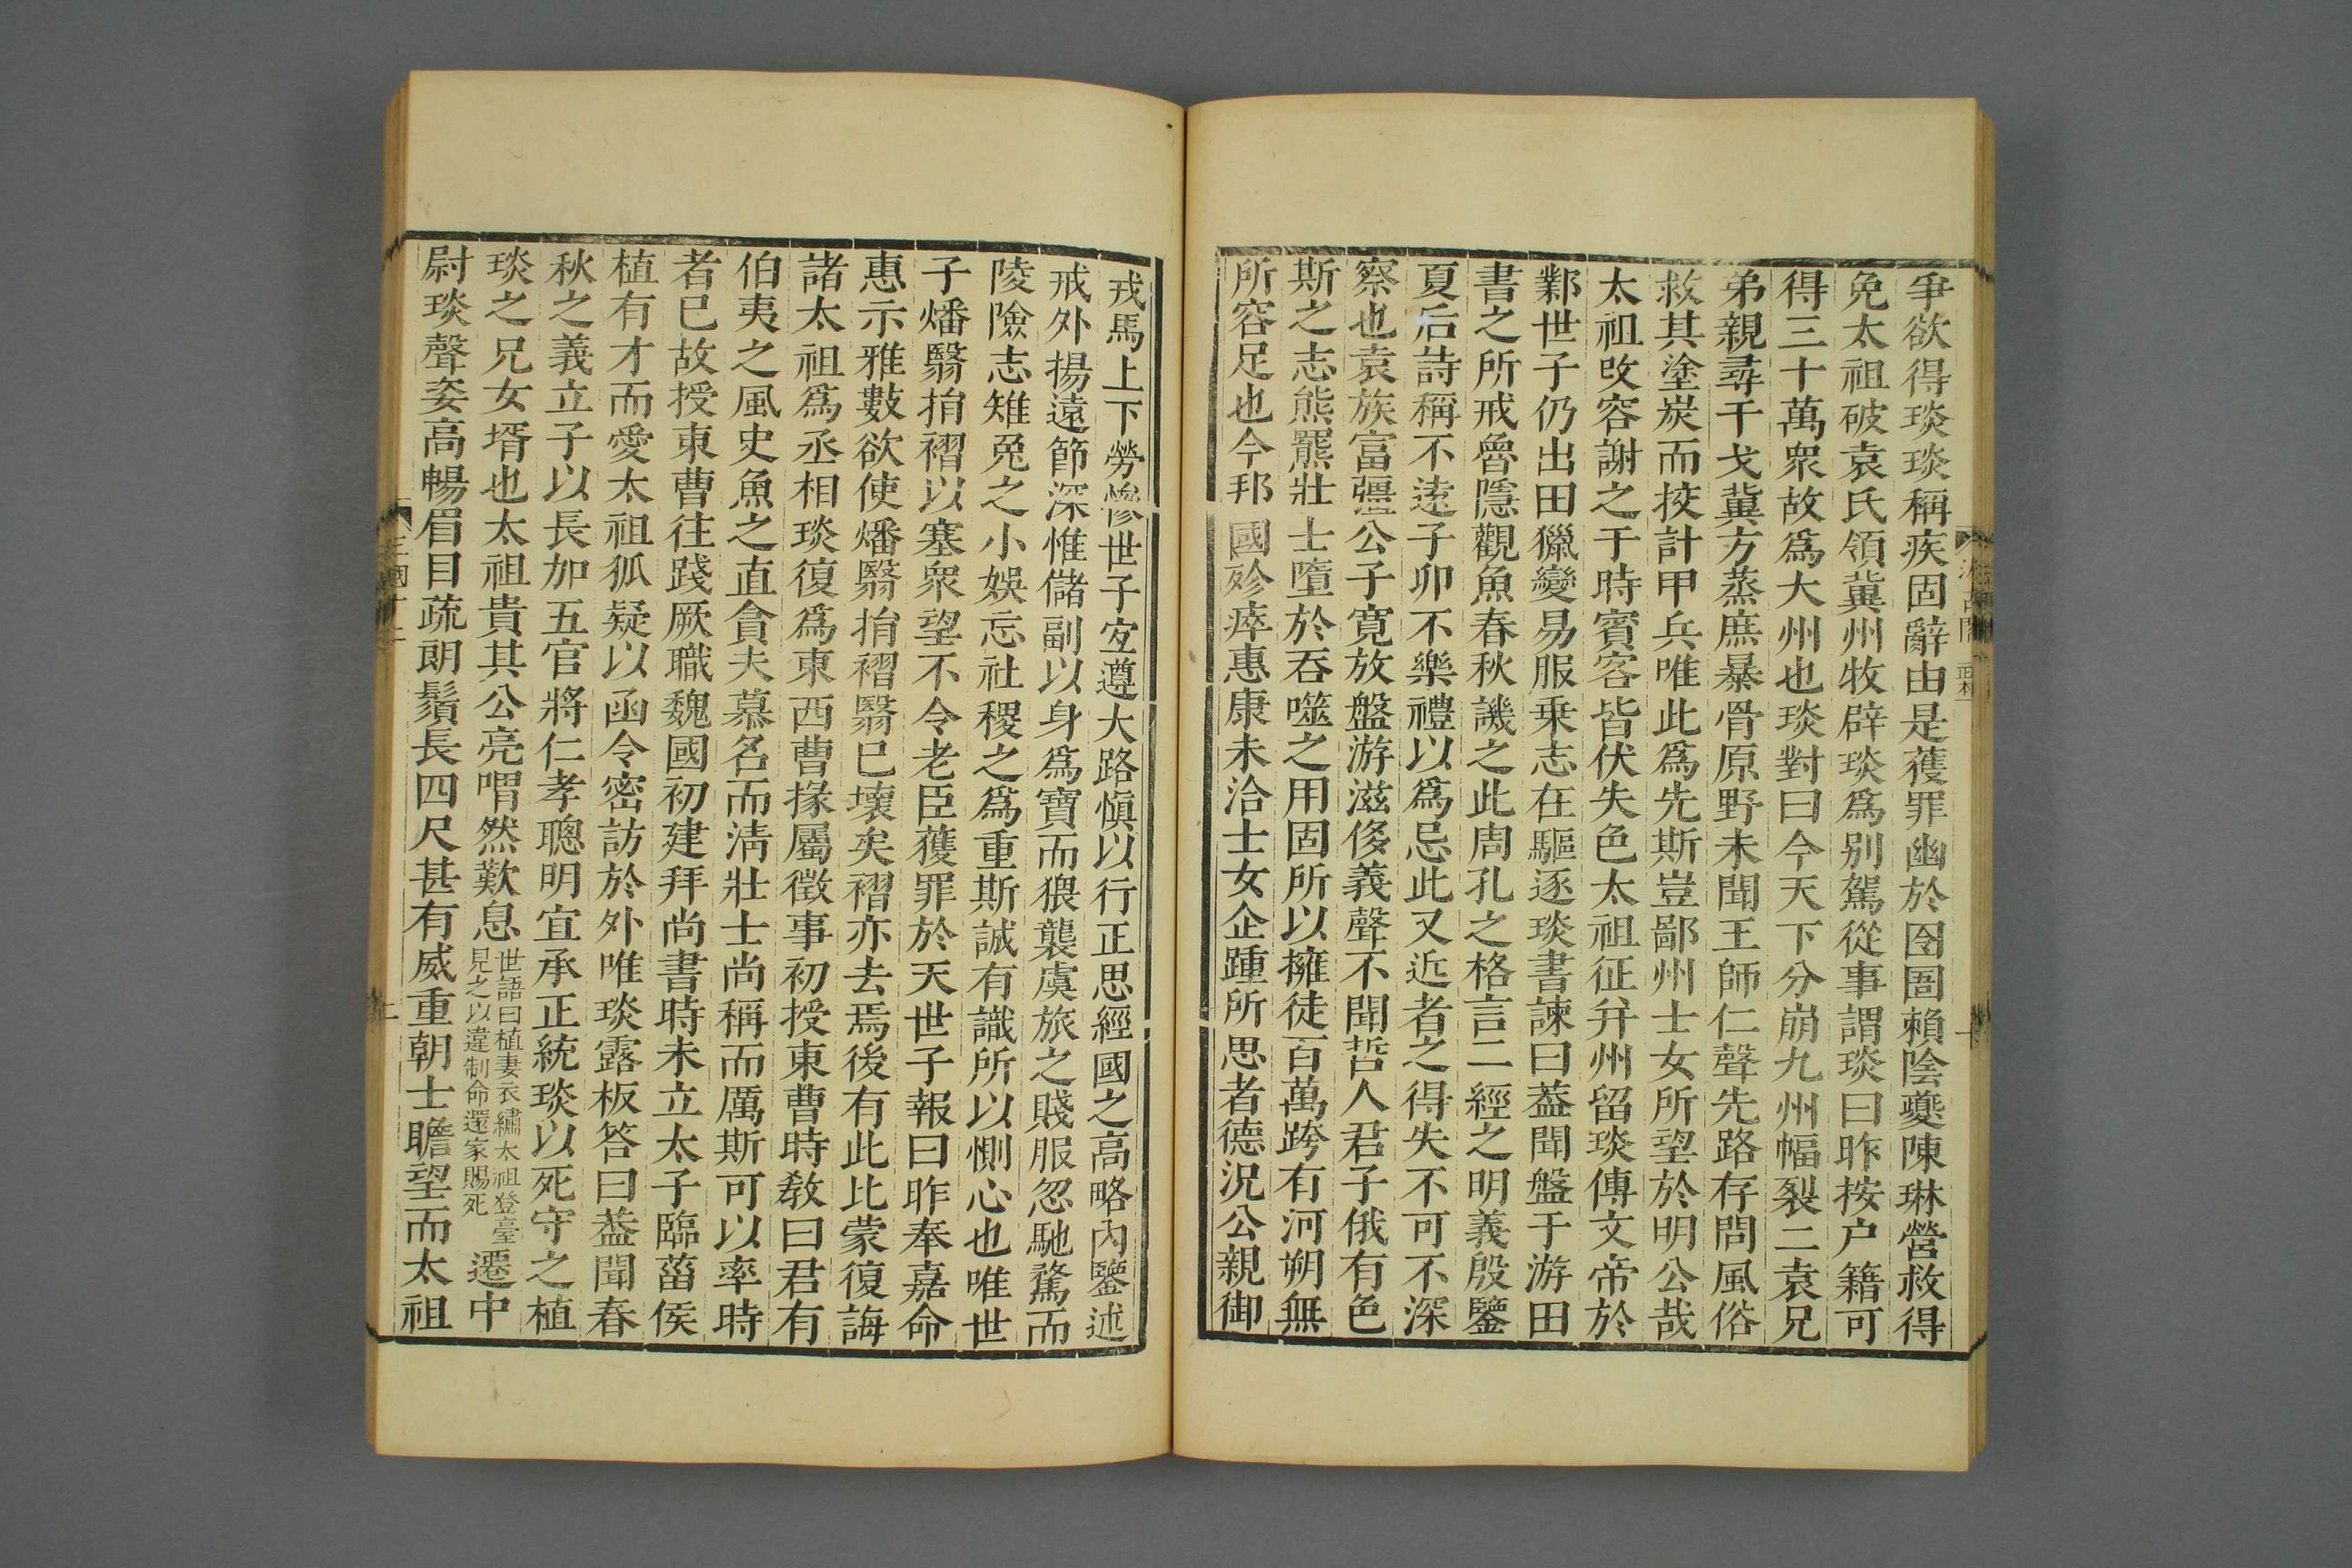 爭欲得琰琰稱疾固辭由是獲罪幽於囹圄賴陰夔陳琳營救得
免太祖破袁氏領冀州牧辟琰爲別駕從事謂琰曰昨按户籍可
得三十萬衆故爲大州也琰對曰今天下分崩九州幅裂二袁兄
弟親尋干戈冀方蒸庶暴骨原野未聞王師仁聲先路存問風俗
救其塗炭而挍計甲兵唯此爲先斯豈鄙州士女所望於明公哉
太祖改容謝之于時賓客皆伏失色太祖征并州留琰傅文帝於
鄴世子仍出田獵變易服乗志在驅逐琰書諫曰葢聞盤于游田
書之所戒魯隱觀魚春秋譏之此周孔之格言二經之明義殷鑒
夏后詩稱不遠子卯不樂禮以爲忌此又近者之得失不可不深
察也袁族富彊公子寬放盤游滋侈義聲不聞哲人君子俄有色
斯之志熊羆壯士墮於吞噬之用固所以擁徒百萬跨有河朔無
所容足也今邦國殄瘁惠康未洽士女企踵所思者德況公親御
戎馬上下勞慘世子宜遵大路愼以行正思經國之高略內鑒近
戒外揚遠節深惟儲副以身爲寶而猥襲虞旅之賤服忽馳騖而
陵險志雉兎之小娛忘社稷之爲重斯誠有識所以惻心也唯世
子燔翳捐褶以塞衆望不令老臣獲罪於天世子報曰昨奉嘉命
惠示雅數欲使燔翳捐褶翳已壞矣褶亦去焉後有此比蒙復誨
諸太祖爲丞相琰復爲東西曹掾屬徵事初授東曹時敎曰君有
伯夷之風史魚之直貪夫慕名而淸壯士尚稱而厲斯可以率時
者已故授東曹往踐厥職魏國初建拜尚書時未立太子臨菑侯
植有才而愛太祖狐疑以函令密訪於外唯琰露板答曰葢聞春
秋之義立子以長加五官將仁孝聰明宜承正統琰以死守之植
琰之兄女壻也太祖貴其公亮喟然歎息世語曰植妻衣繡太祖登臺見之以違制命還家賜死遷中
尉琰聲姿高暢眉目疏朗鬚長四尺甚有威重朝士瞻望而太祖